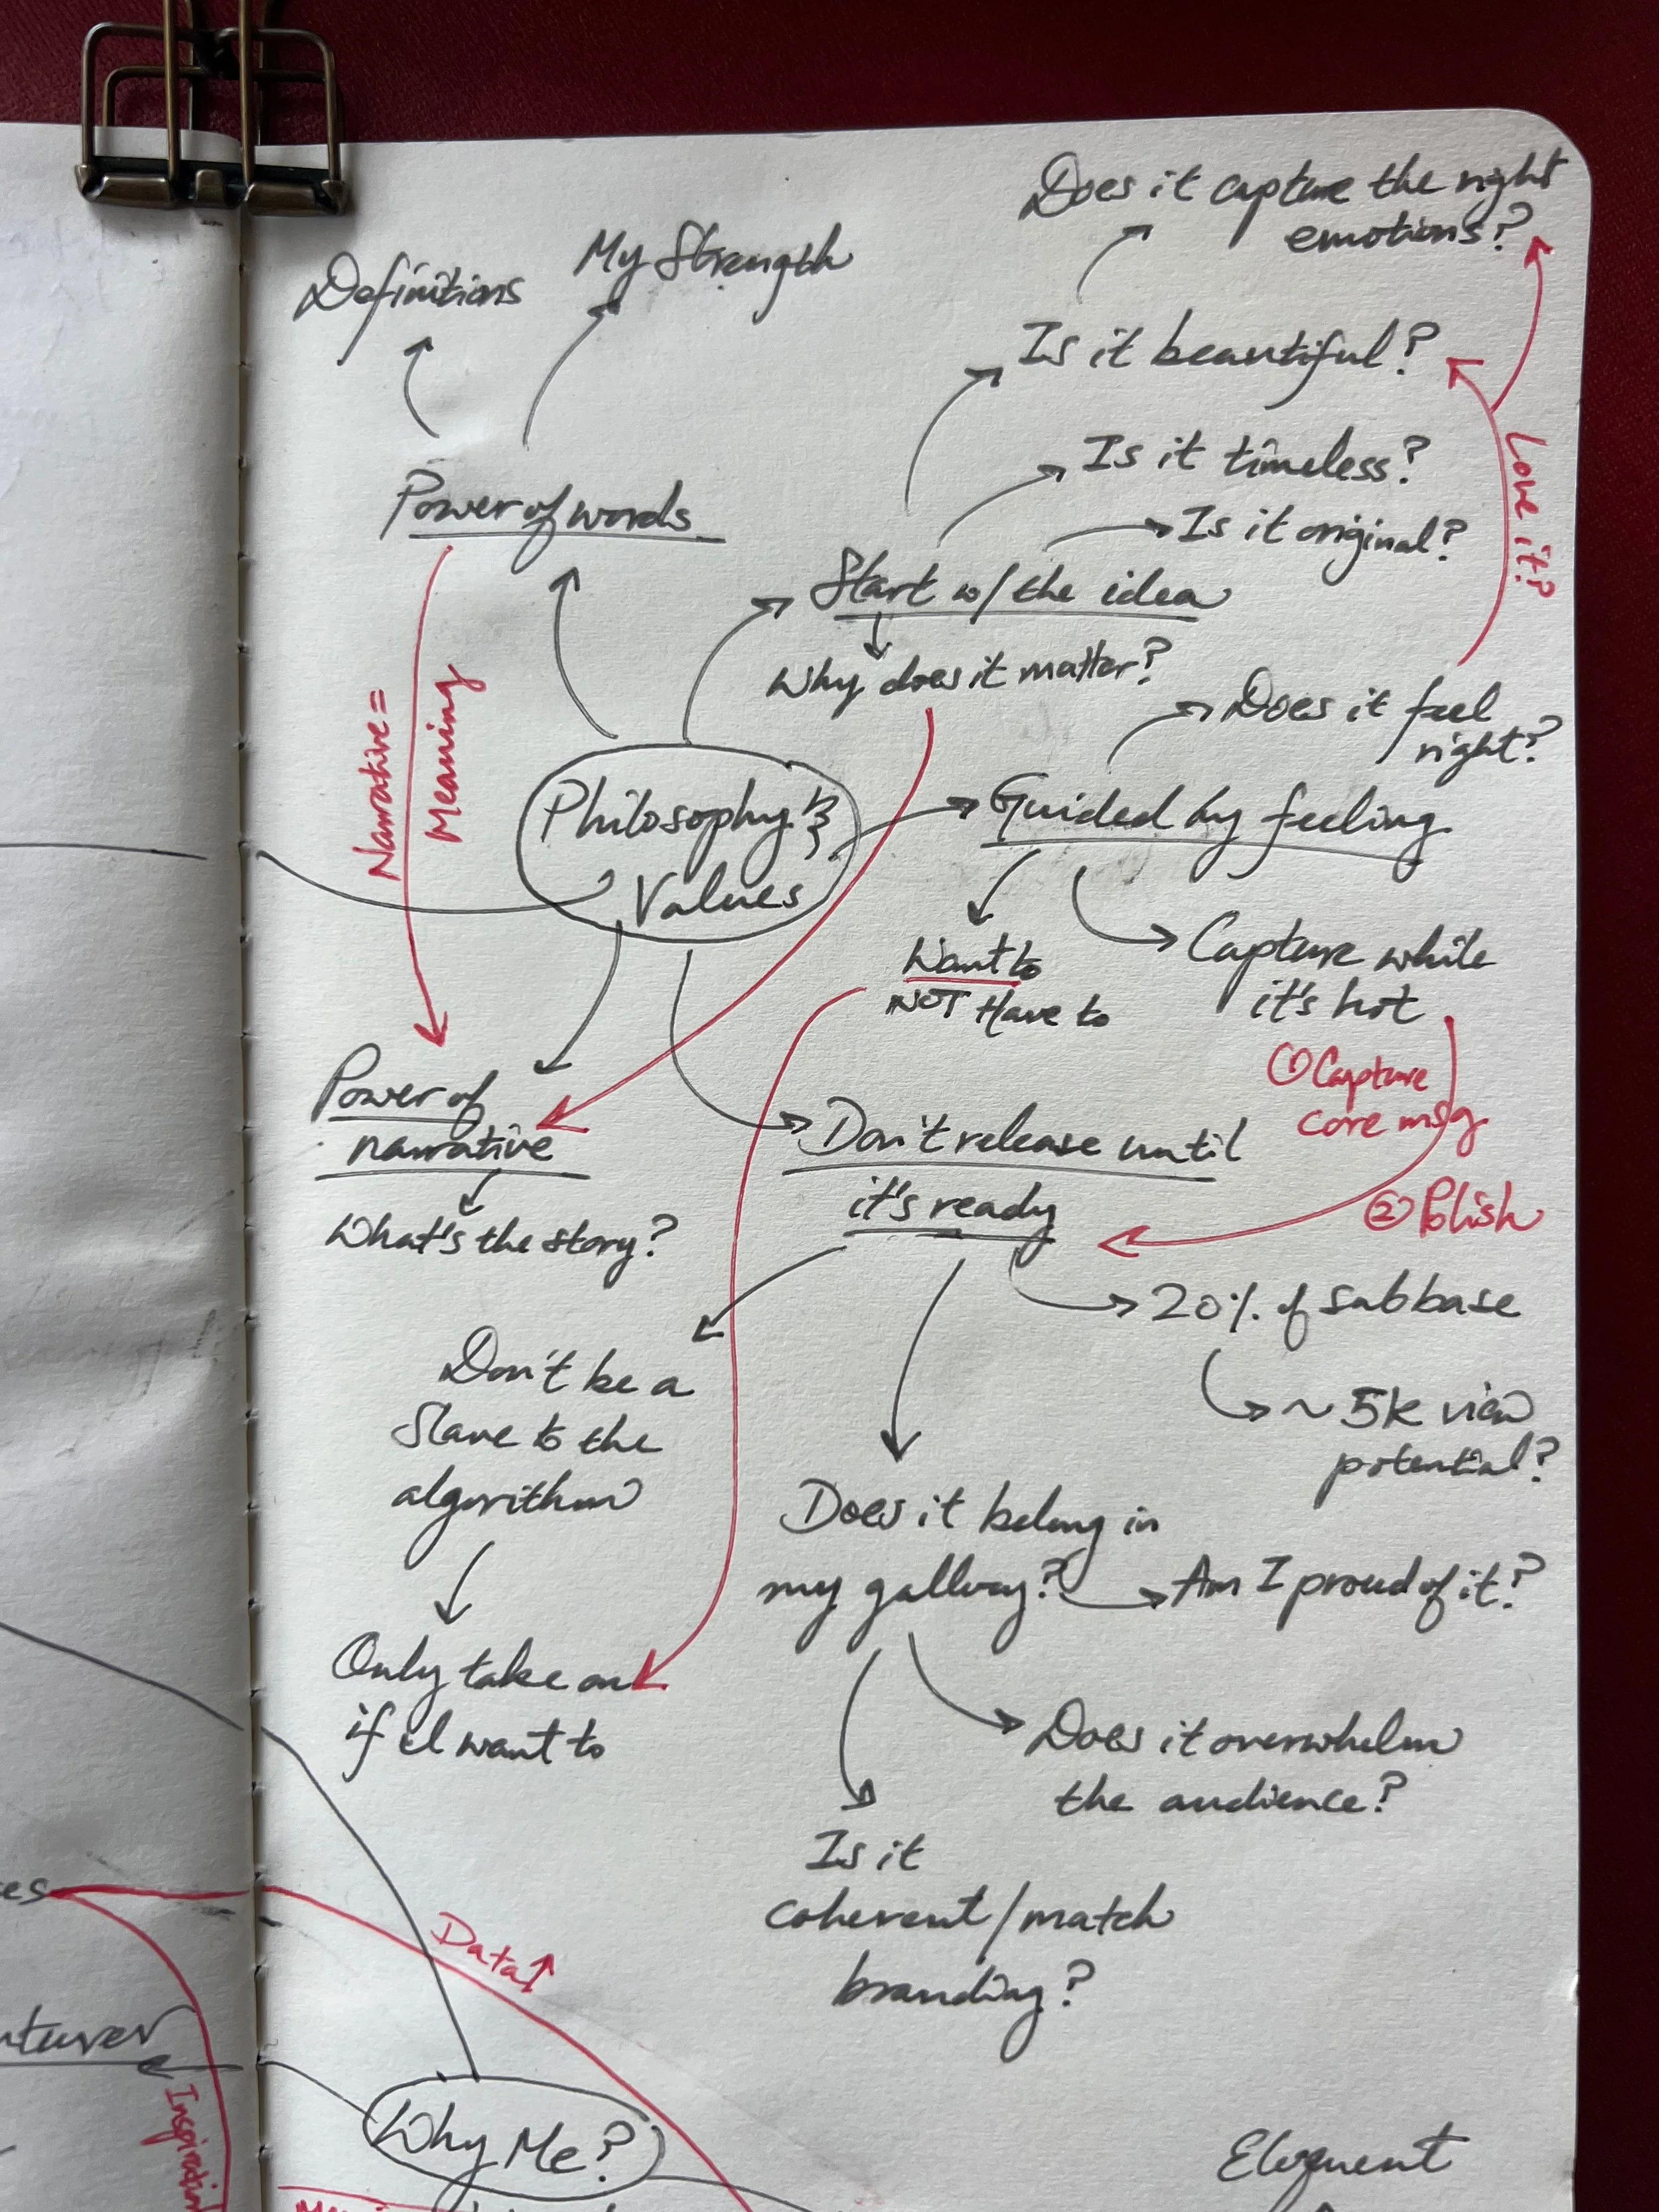 Does it capture the right
emotions?
My Strength
Definitions
Is it beautiful?
Is it timeless?
Is it original?
Love it?
Power of words
Start w/ the idea
Why does it matter?
Narrative =
Meaning
Does it feel
right?
Philosophy &
Values
Guided by feeling
Want to
NOT Have to
Capture while
it's hot
① Capture
core msg
② Polish
Power of
narrative
What's the story?
Don't release until
it's ready
20% of subbase
~ 5k view
potential?
Don't be a
slave to the
algorithm
Only take on
if I want to
Does it belong in
my gallery?
Am I proud of it?
Does it overwhelm
the audience?
Is it
coherent/match
branding?
Data↑
Inspiration
Why Me?
Eloquent